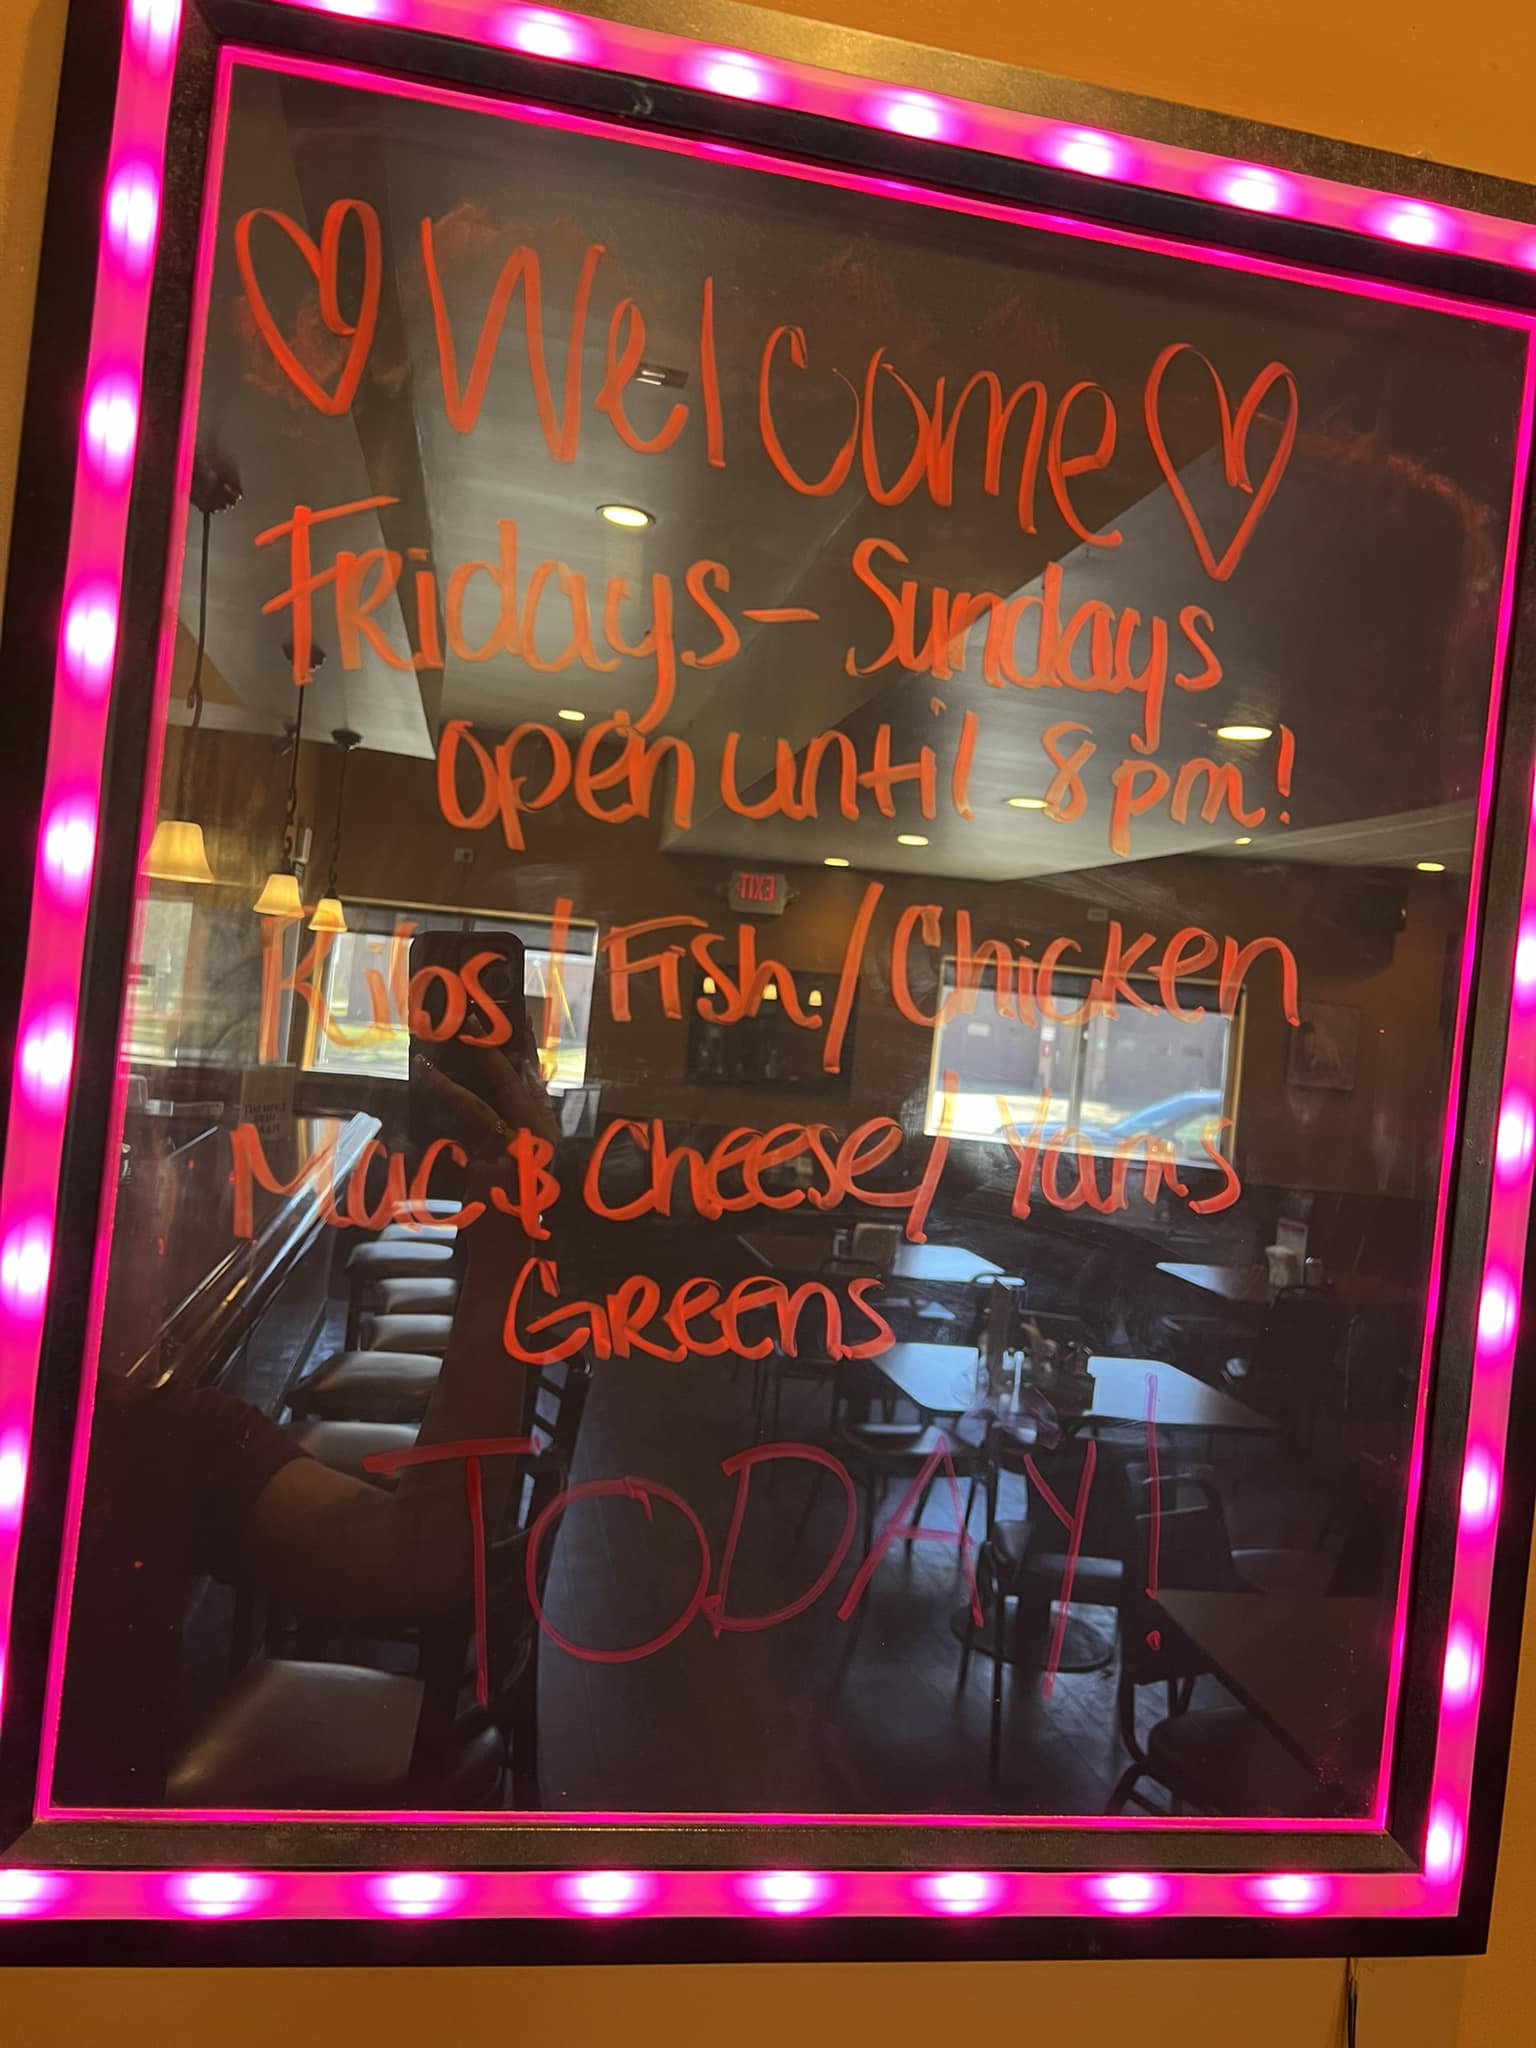 Welcome
Fridays - Sundays
open until 8pm!
Ribs / Fish / Chicken
Mac & Cheese / Yams
Greens
TODAY!
EXIT